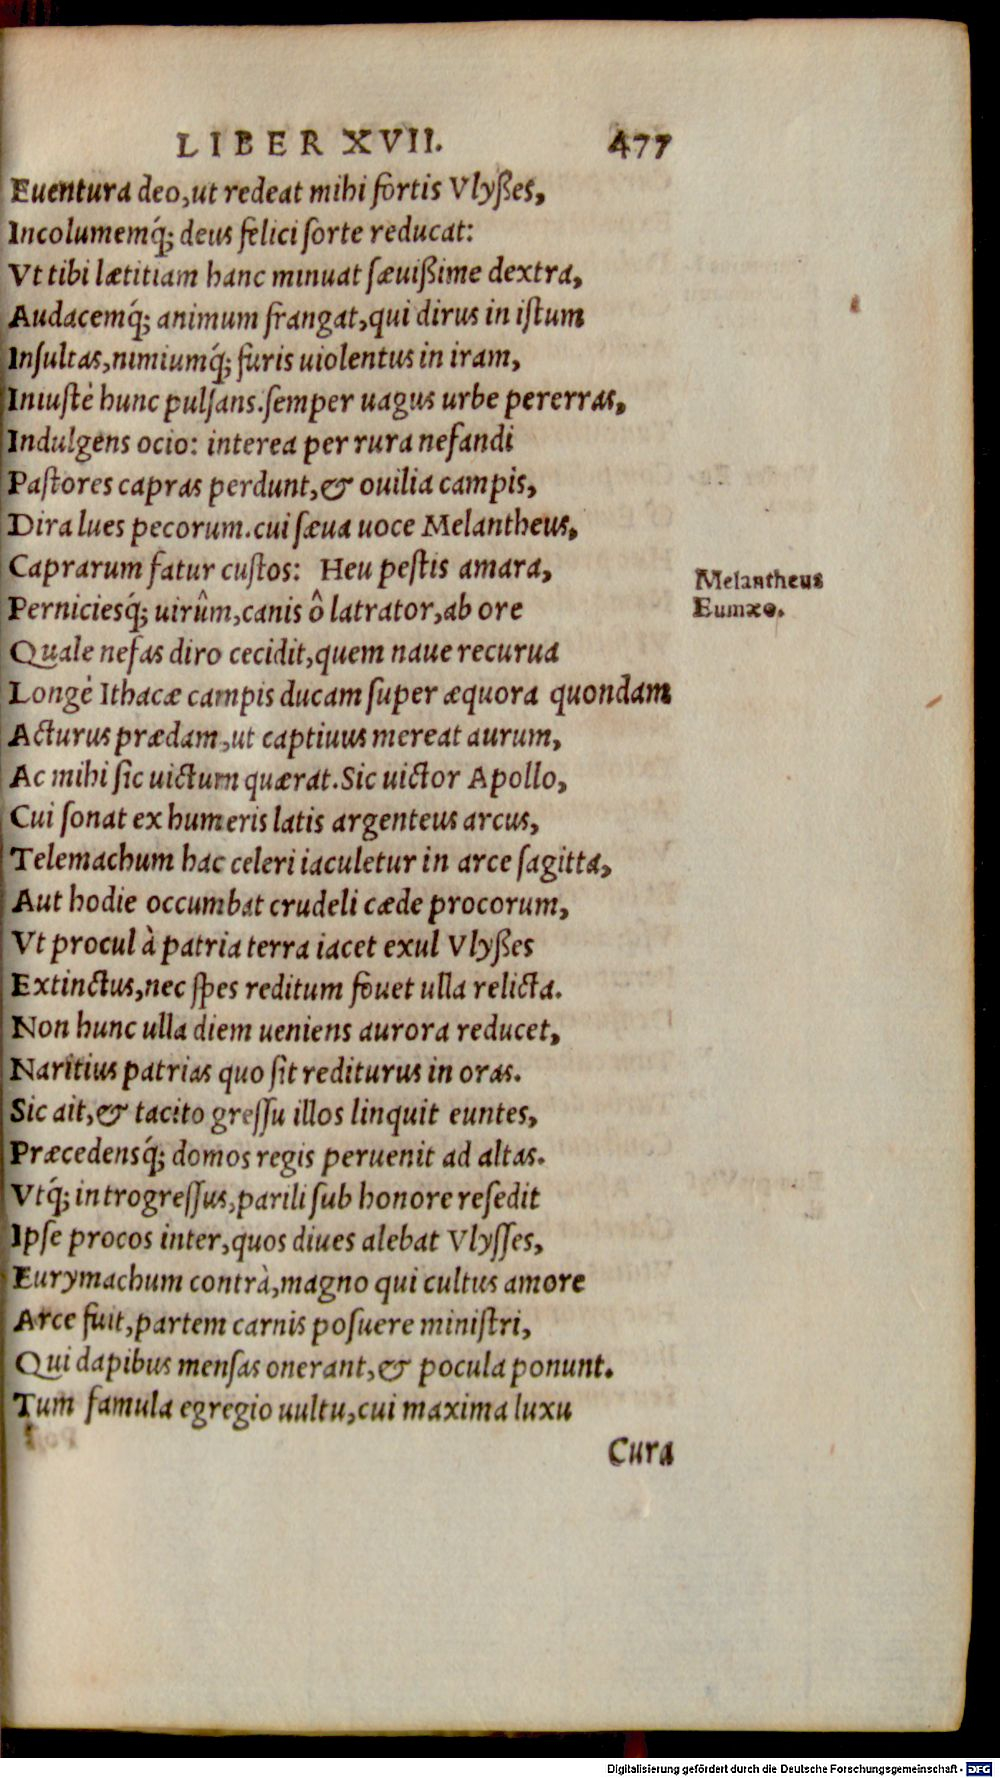 LIBER XVII. 477
Euentura deo, ut redeat mihi fortis Vlyßes,
Incolumemq́; deus felici ſorte reducat:
Vt tibi lætitiam hanc minuat ſæuißime dextra,
Audacemq́; animum frangat, qui dirus in iſtum
Inſultas, nimiumq́; furis uiolentus in iram,
Iniuſtè hunc pulſans. ſemper uagus urbe pererras,
Indulgens ocio: interea per rura nefandi
Paſtores capras perdunt, & ouilia campis,
Dira lues pecorum. cui ſæua uoce Melantheus,
Caprarum fatur cuſtos: Heu peſtis amara,
Melantheus
Pernicieſq́; uirûm, canis ô latrator, ab ore
Eumæo.
Quale nefas diro cecidit, quem naue recurua
Longè Ithacæ campis ducam ſuper æquora quondam
Acturus prædam, ut captiuus mereat aurum,
Ac mihi ſic uictum quærat. Sic uictor Apollo,
Cui ſonat ex humeris latis argenteus arcus,
Telemachum hac celeri iaculetur in arce ſagitta,
Aut hodie occumbat crudeli cæde procorum,
Vt procul à patria terra iacet exul Vlyßes
Extinctus, nec ſpes reditum fouet ulla relicta.
Non hunc ulla diem ueniens aurora reducet,
Naritius patrias quo ſit rediturus in oras.
Sic ait, & tacito greſſu illos linquit euntes,
Præcedenſq́; domos regis peruenit ad altas.
Vtq́; introgreſſus, parili ſub honore reſedit
Ipſe procos inter, quos diues alebat Vlyſſes,
Eurymachum contrà, magno qui cultus amore
Arce fuit, partem carnis poſuere miniſtri,
Qui dapibus menſas onerant, & pocula ponunt.
Tum famula egregio uultu, cui maxima luxu
Cura
Digitalisierung gefördert durch die Deutsche Forschungsgemeinschaft - DFG